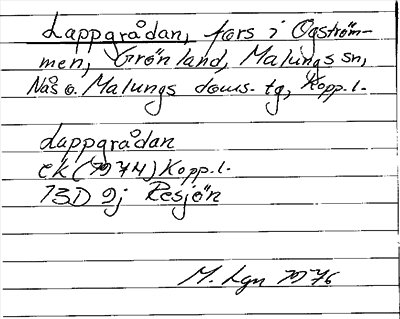 Lappgrådan, fors i Ogström-
men, Grönland, Malungs sn,
Nås o. Malungs doms. tg, Kopp.l.
Lappgrådan
ek (1974) Kopp.l.
13D 9j Resjön
M. Lgn 1976